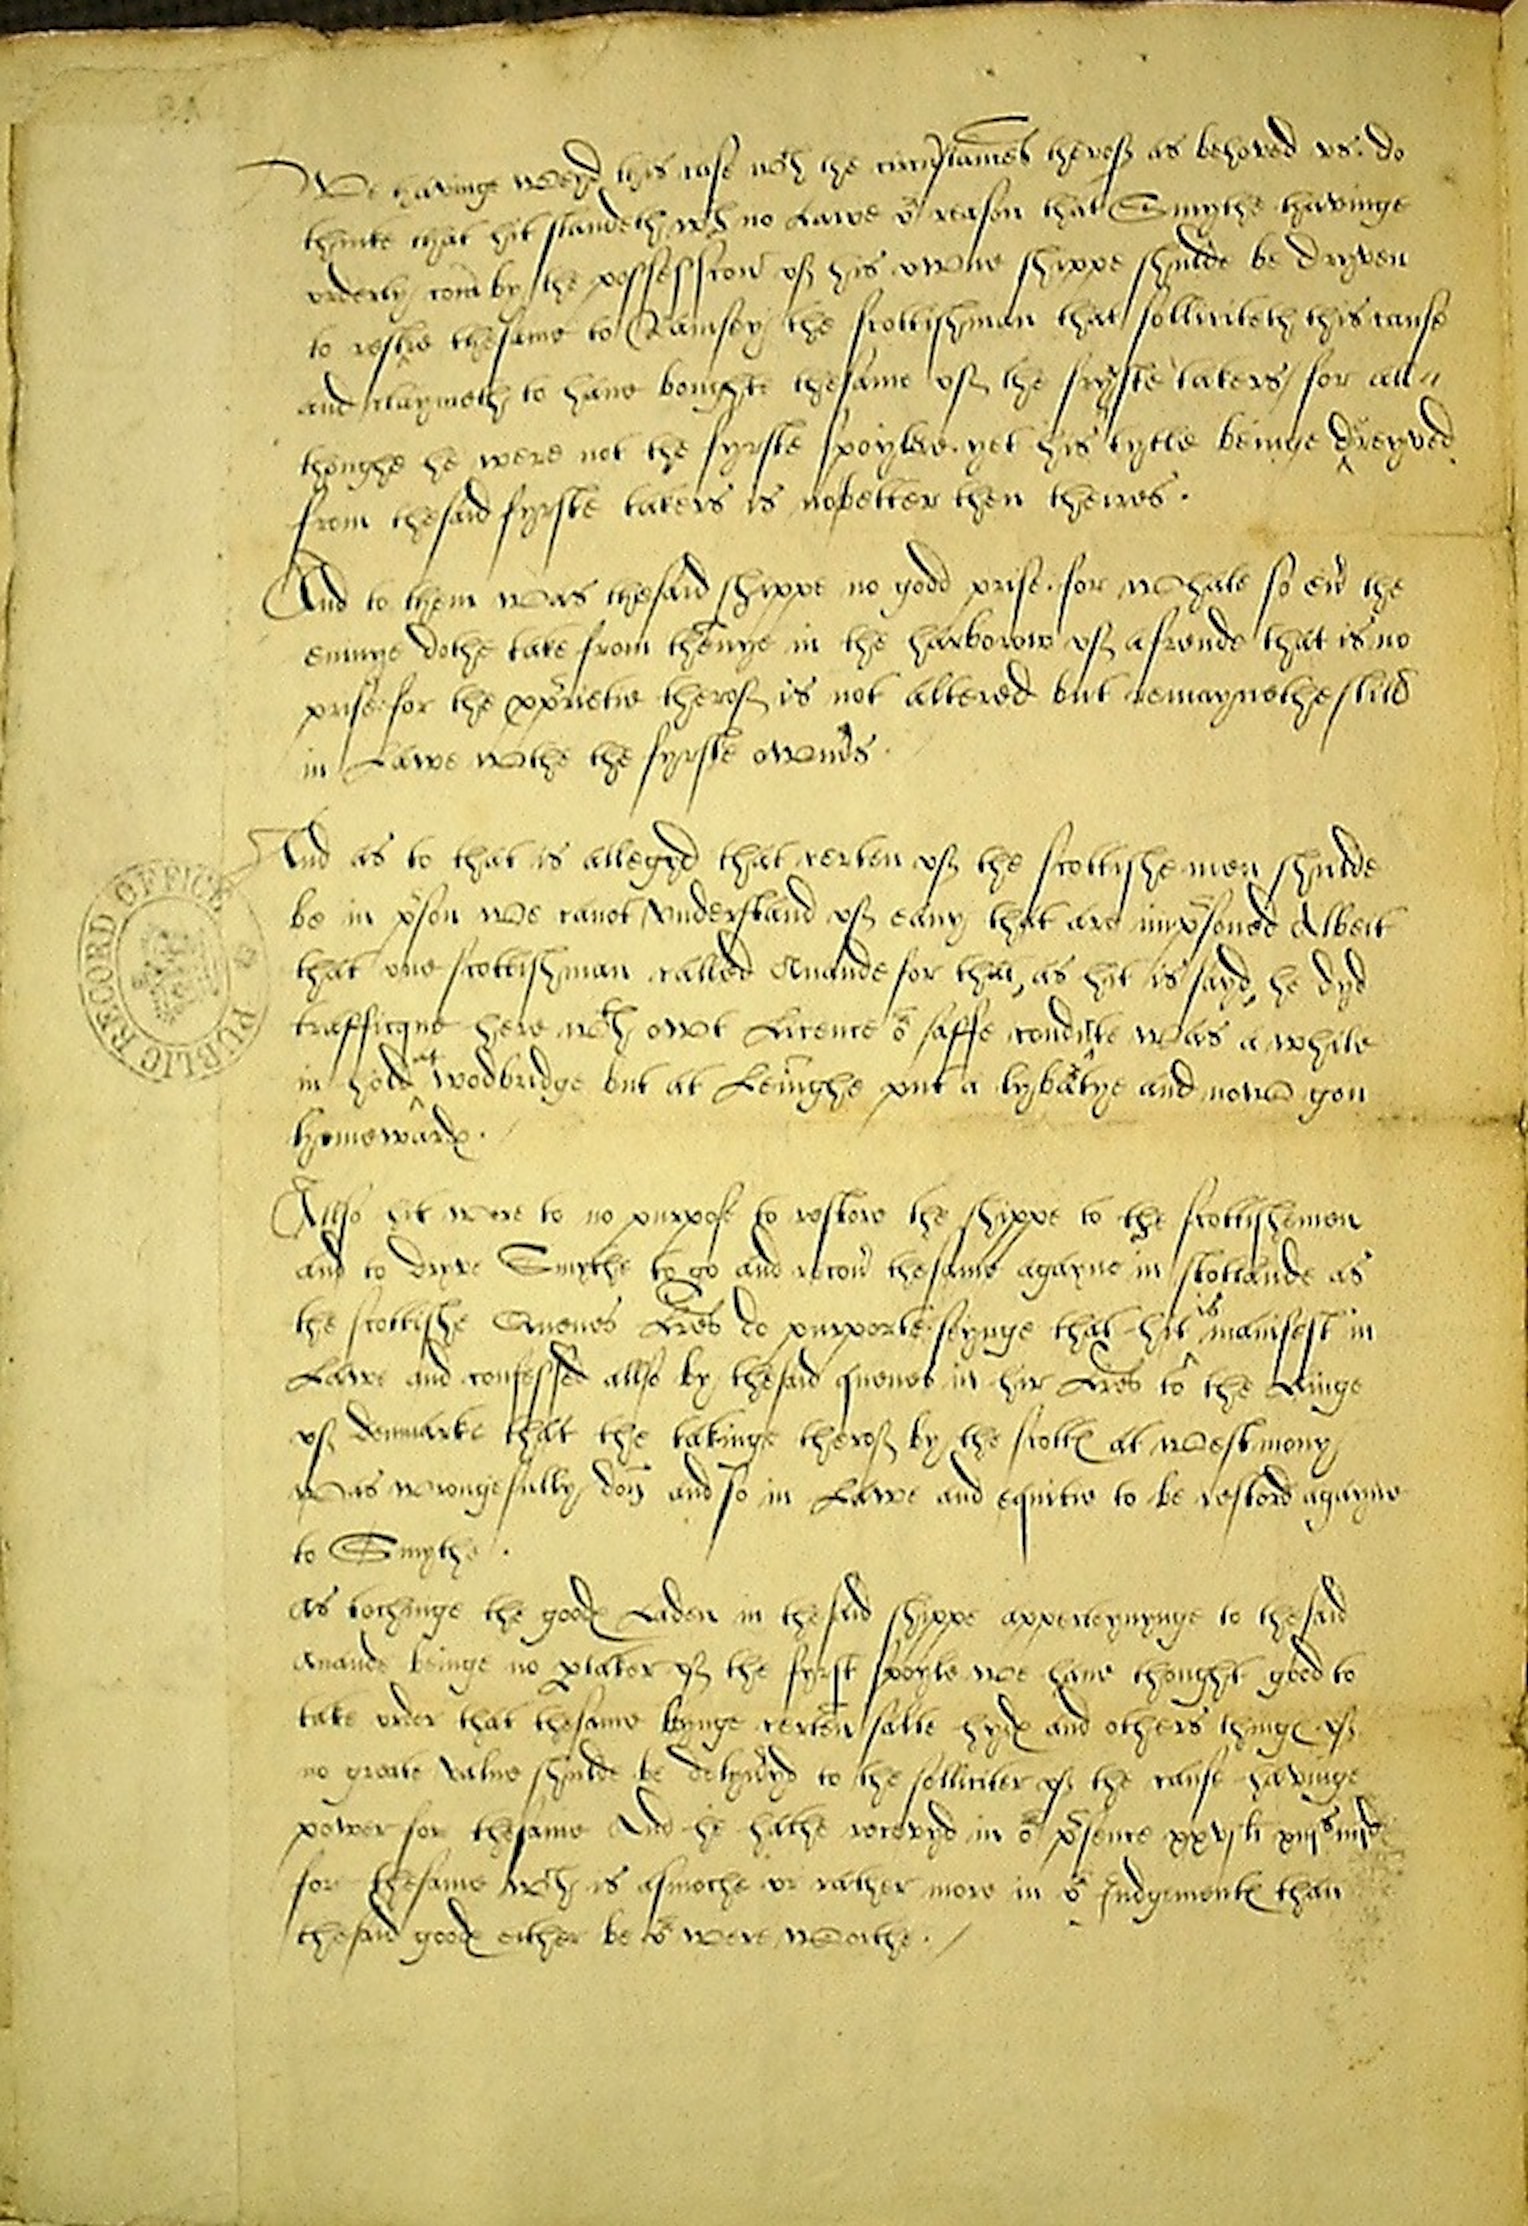 We havinge weyd this case wth the circustances therof as behoved us. do
thinke that hit standeth wth no Lawe or reason that Smythe havinge
orderly com by the possession of his owne shippe shulde be dryven
to restore thesame to Ramsey the scottishman that solliciteth this cause
and claymeth to have boughte thesame of the fyrste takers, for all=
thoughe he were not the fyrste spoyler. yet his tytle beinge dereyved
from thesaid fyrste takers is nobetter then theires.
And to them was thesaid shippe no godd prise. for whate so eur the
enmye dothe take from thenmye in the harborow of a frende that is no
prise for the prietie therof is not altered but remaynethe still
in Lawe withe the fyrste owners.
And as to that is allegyd that certen of the scottishe men shulde
be in prison we canot understand of eany that are imprisoned Albeit
that one scottishman called Anande for that, as hit is sayd, he dyd
trafficque here wth owt Licence or saffe conducte was a while
in hold at wodbridge but at Lenghe put a lybartye and now gon
homeward.
Allso hit were to no purpose to restore the shippe to the scottishemen
and to dryve Smythe to go and recour thesame agayne in skotlande as
the scottishe Quenes Lres do purporte. seynge that hit is manifest in
Lawe and confessed allso by thesaid quenes in hir Lres to the Kinge
of denmarke that the takinge therof by the scotts at westmony
was wrongefully don and so in Lawe and equitie to be restord agayne
to Smythe.
As tochinge the goods Laden in thesaid shippe apperteynynge to thesaid
Anande beinge no ptaker of the fyrst spoyle we have thought good to
take order that thesame beynge certen salte hyds and others things of
no greate value shulde be delyveryd to the solliciter of the cause havinge
power for thesame And he hathe receivyd in or presence xxvj li xiijs iiijd
for thesame wch is asmoche or rather more in or Judgements than
thesaid goods either be or were worthe.
PUBLIC RECORD OFFICE